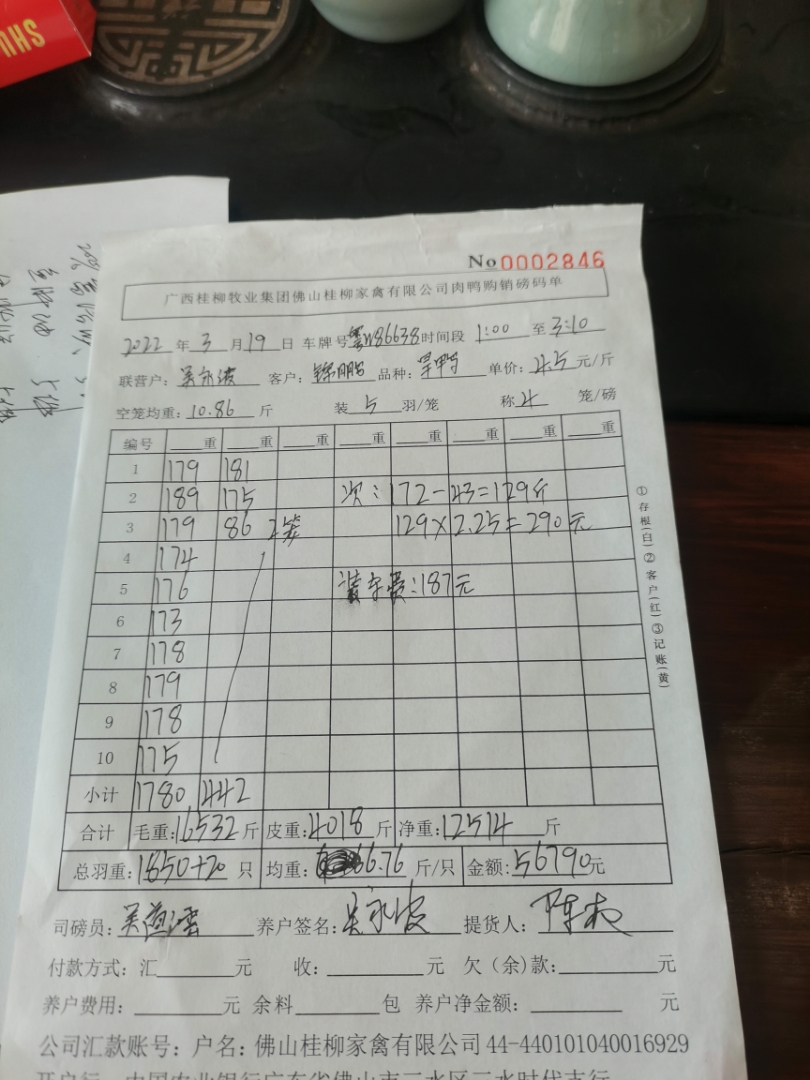 SHU
No 0002846
广西桂柳牧业集团佛山桂柳家禽有限公司肉鸭购销磅码单
2022 年 3 月 19 日 车牌号 86638 时间段 1:00 至 3:10
联营户: 吴永波 客户: 锦鹏 品种: 单价: 4.5 元/斤
空笼均重: 10.86 斤 装 5 羽/笼 称 4 笼/磅
编号 重 重 重 重 重 重 重 重
1 179 181
2 189 175 次: 172-43=129斤
3 179 86 2笼 129×2.25=290元
4 174
5 176 装车费:187元
6 173
7 178
8 179
9 178
10 175
小计 1780 442
合计 毛重: 16532 斤 皮重: 4018 斤 净重: 12514 斤
总羽重: 1850+20 只 均重: 6.76 斤/只 金额: 56790 元
司磅员: 养户签名: 吴永波 提货人:
付款方式: 汇 元 收: 元 欠(余)款: 元
养户费用: 元 余料 包 养户净金额: 元
公司汇款账号: 户名: 佛山桂柳家禽有限公司 44-440101040016929
开户行: 中国农业银行广东省佛山市三水区三水时代支行
①存根(白)②客户(红)③记账(黄)